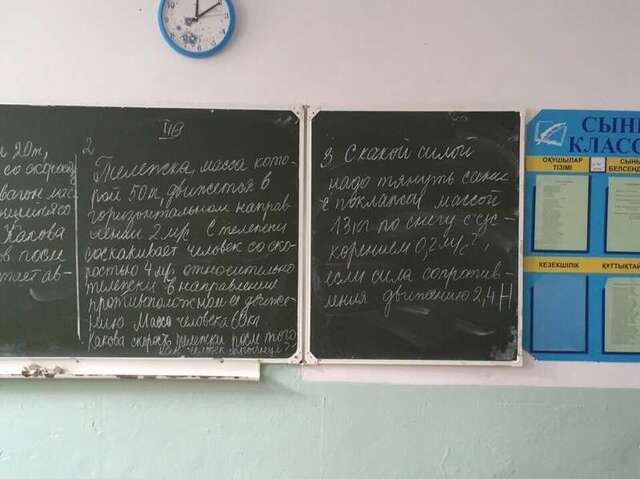 20т,
со скорос
вагон мас
щийся со
Какова
ов после
2
Тележка, масса кото-
рой 50т, движется в
горизонтальном направ-
лении 2 м/с С тележки
соскакивает человек со ско-
ростью 4 м/с относительно
тележки в направлении
противоположном её движе-
нию Масса человека
Какова скорость тележки после того
как человек спрыгнул?
3 С какой силой
надо тянуть сани
с поклажей массой
13 кг по снегу с ус-
корением 0,2 м/с²,
если сила сопротив-
ления движению 2,4 Н
СЫНЫ
КЛАСС
ОҚУШЫЛАР
ТІЗІМІ
СЫНЫ
БЕЛСЕНД
КЕЗЕКШІЛІК
ҚҰТТЫҚТА